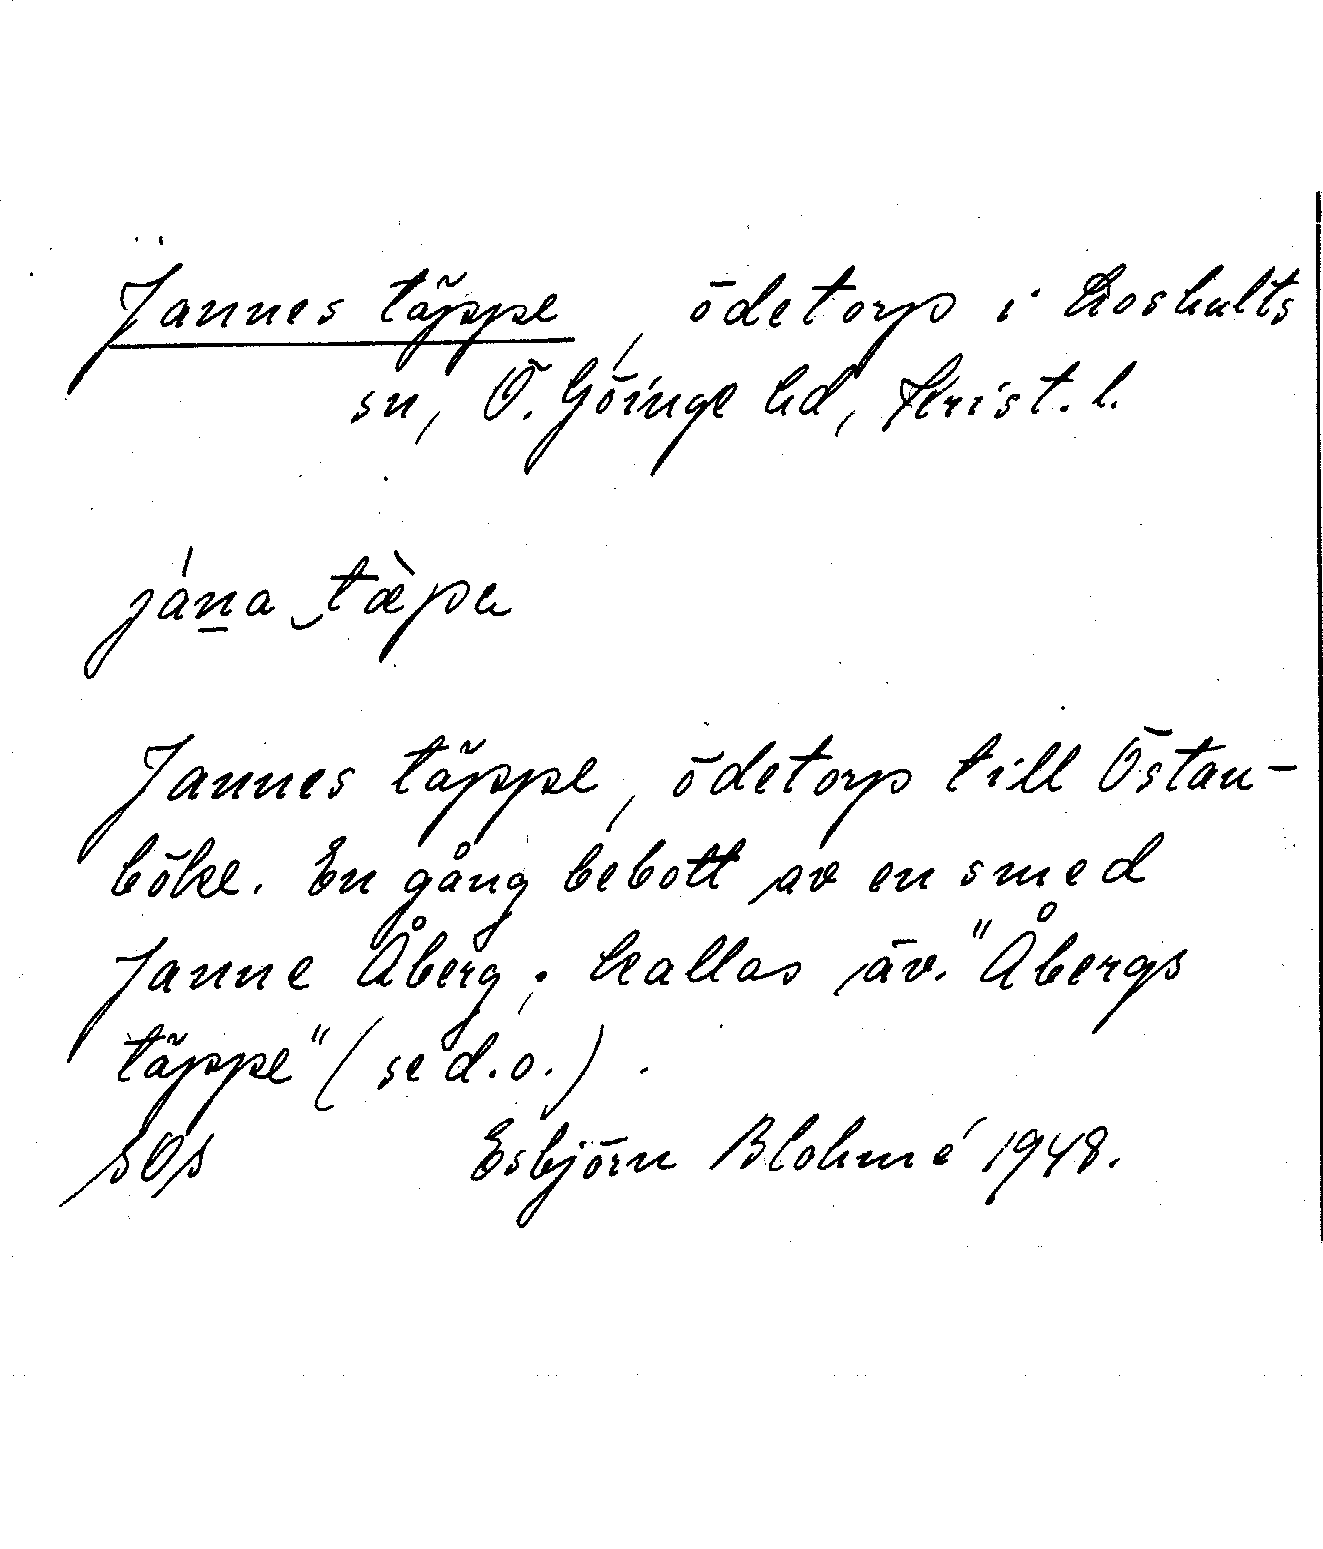 Jannes täppe, ödetorp i Loshults
sn, Ö. Göinge hd, Krist. l.
jána tæ̀pa
Jannes täppe, ödetorp till Östan-
böke. En gång bebott av en smed
Janne Åberg; kallas äv. "Åbergs
täppe" (se d.o.).
Esbjörn Blohmé 1948.